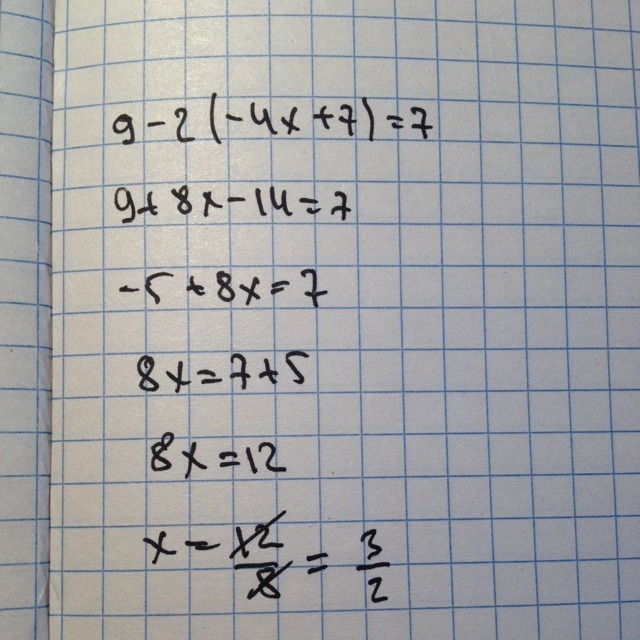 9-2(-4x+7)=7
9+8x-14=7
-5+8x=7
8x=7+5
8x=12
x=12/8=3/2